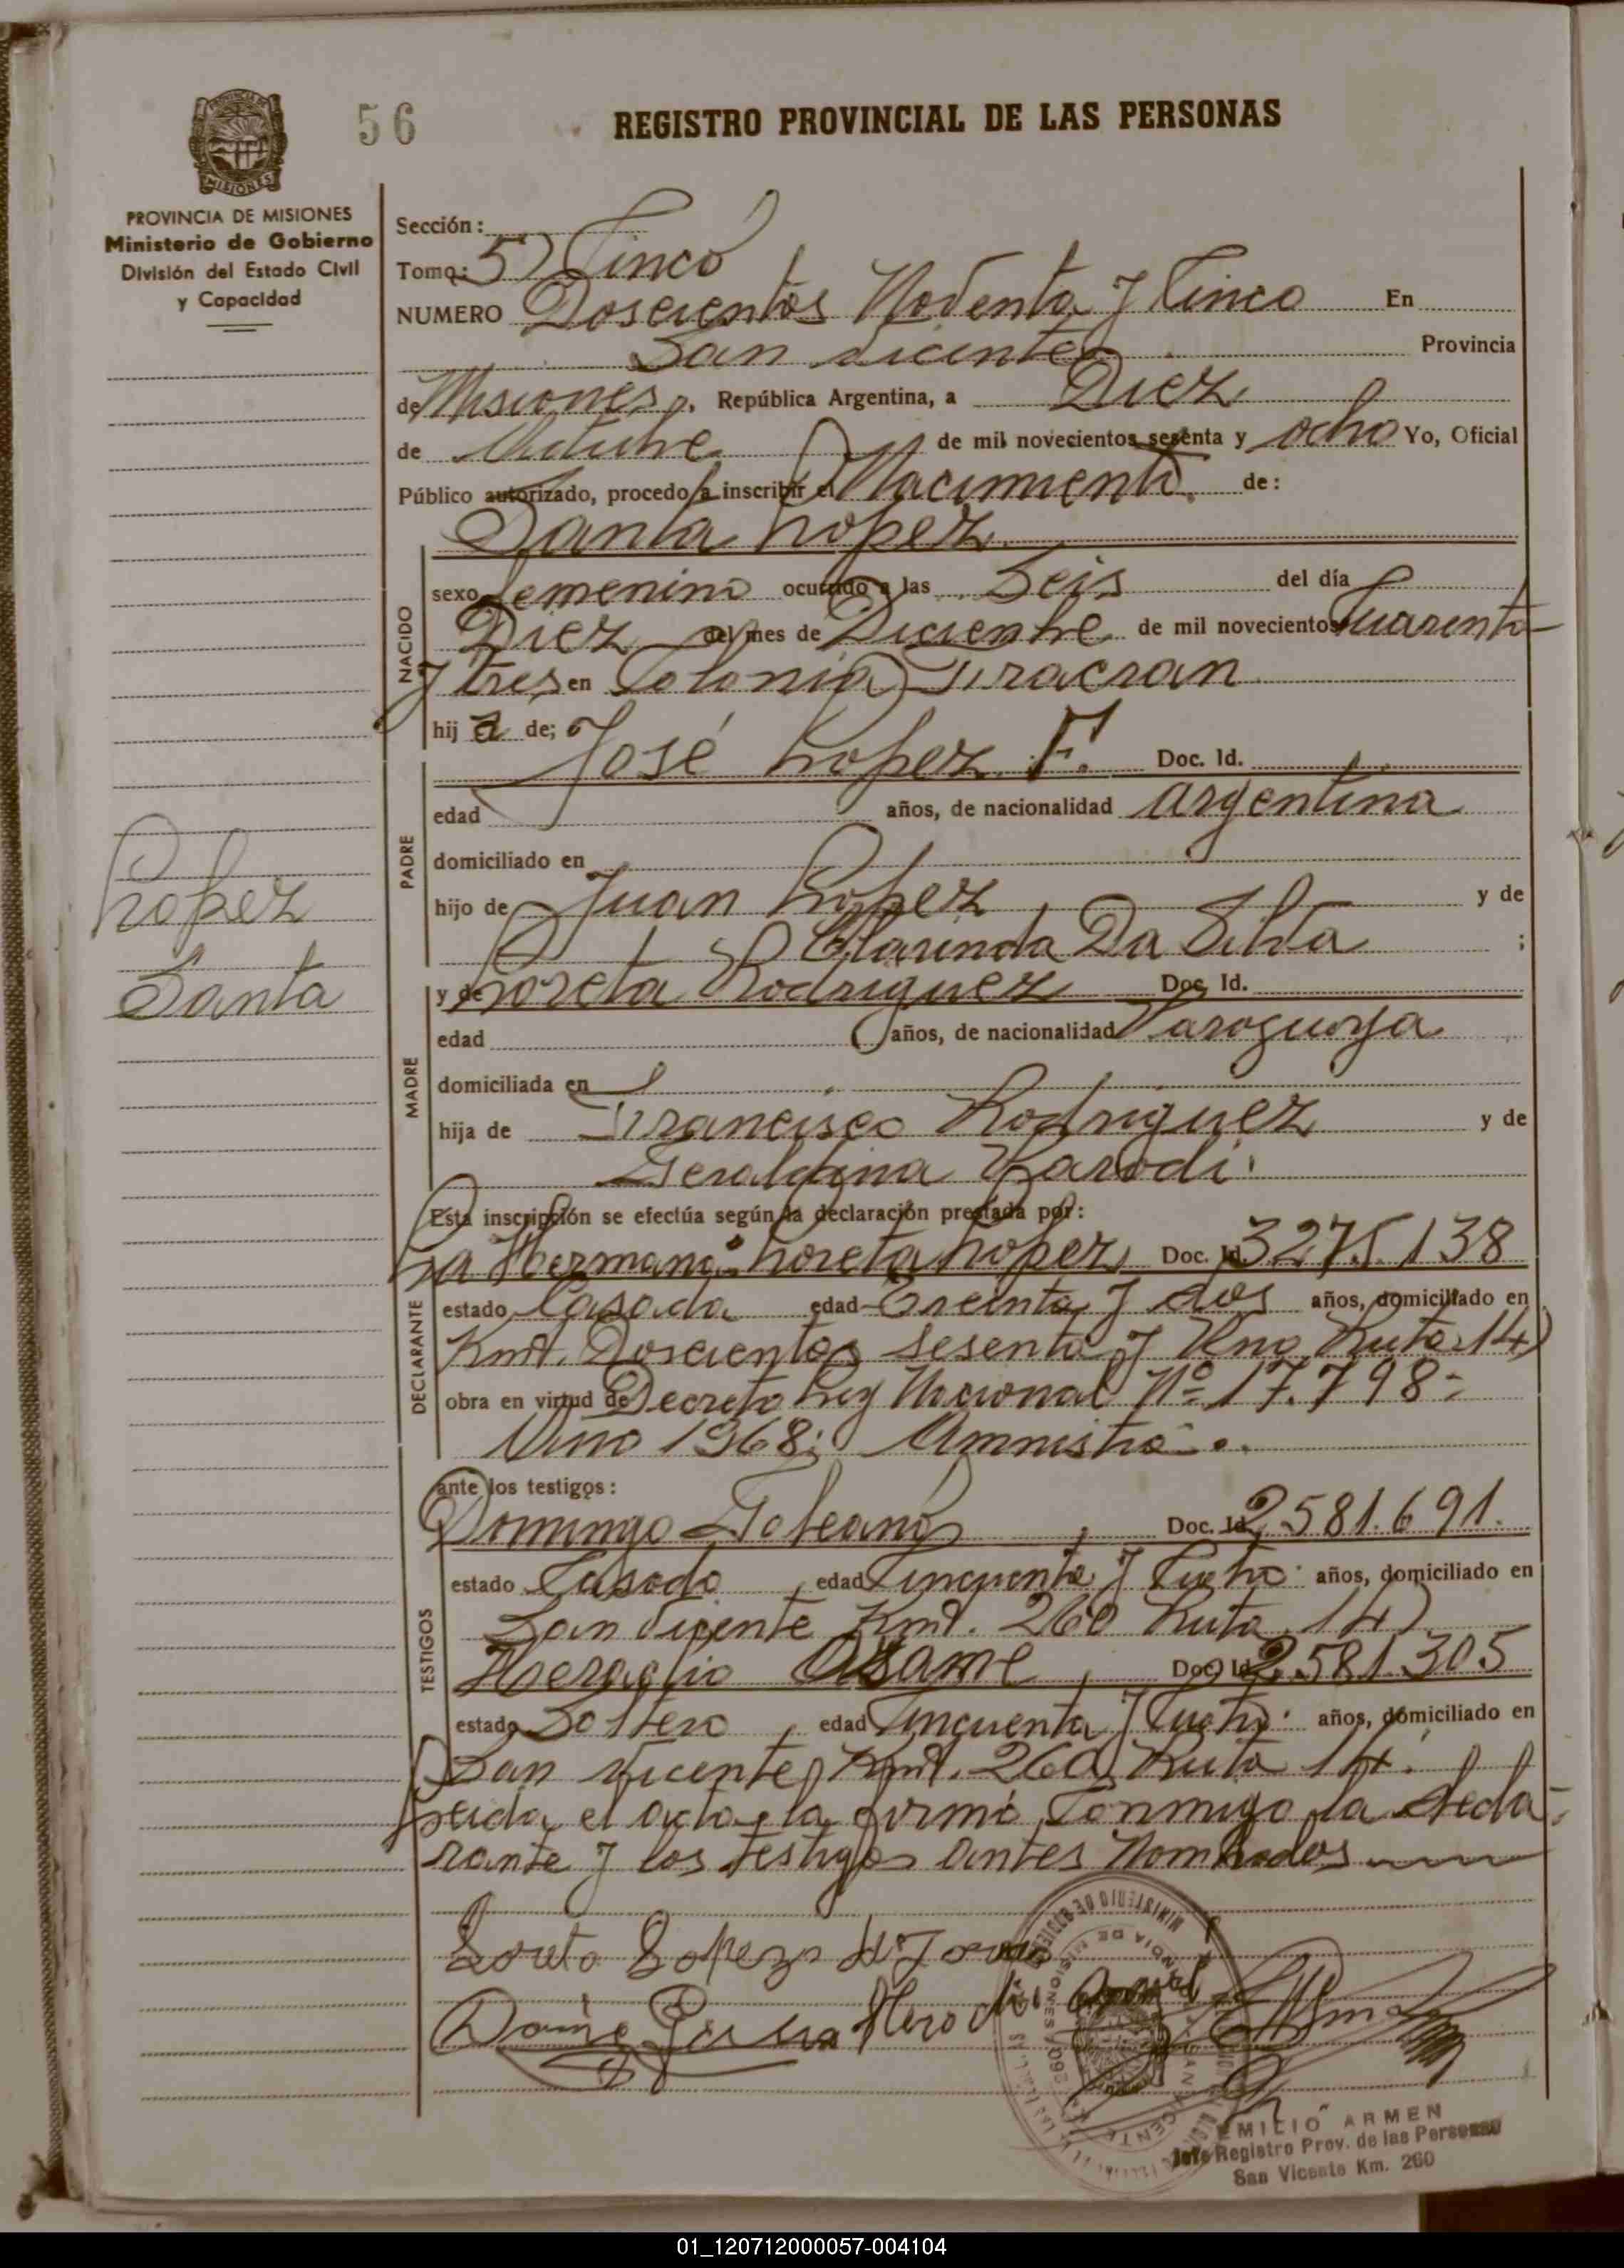 56
REGISTRO PROVINCIAL DE LAS PERSONAS
PROVINCIA DE MISIONES
Ministerio de Gobierno
División del Estado Civil
y Capacidad
Sección:
Tomo: 5) Cinco
NUMERO Doscientos Noventa y Cinco En
San Vicente Provincia
de Misiones, República Argentina, a Diez
de Octubre de mil novecientos sesenta y ocho Yo, Oficial
Público autorizado, procedo a inscribir el Nacimiento de:
Santa Lopez
NACIDO
sexo femenino ocurrido a las Seis del día
Diez del mes de Diciembre de mil novecientos Cuarenta
y tres en Colonia Fracran
hij a de; José Lopez F. Doc. Id.
PADRE
edad años, de nacionalidad argentina
domiciliado en
hijo de Juan Lopez y de
Clarinda Da Silva ;
Lopez
Santa
MADRE
y de Loreta Rodriguez Doc. Id.
edad años, de nacionalidad Paraguaya
domiciliada en
hija de Francisco Rodriguez y de
Geraldina Parodi.
Esta inscripción se efectúa según la declaración prestada por:
DECLARANTE
La Hermana: Loreta Lopez Doc. Id. 3.275.138
estado Casada edad Treinta y dos años, domiciliado en
Kmt. Doscientos sesenta y Uno Ruta 14)
obra en virtud de Decreto Ley Nacional Nº 17.798-
Año 1968; Amnistia.
ante los testigos:
TESTIGOS
Domingo Doc. Id. 2.581.691.
estado Casado, edad Cincuenta y Cuatro años, domiciliado en
San Vicente Kmt. 260 Ruta 14)
Doc. Id. 2.581.305
estado Soltero, edad Cincuenta y Cuatro años, domiciliado en
San Vicente Kmt. 260 Ruta 14.
Leida el acta la firmó Conmigo la decla-
rante y los testigos antes Nombrados
Loreta Lopez de
EMILIO ARMEN
Jefe Registro Prov. de las Personas
San Vicente Km. 260
01_120712000057-004104